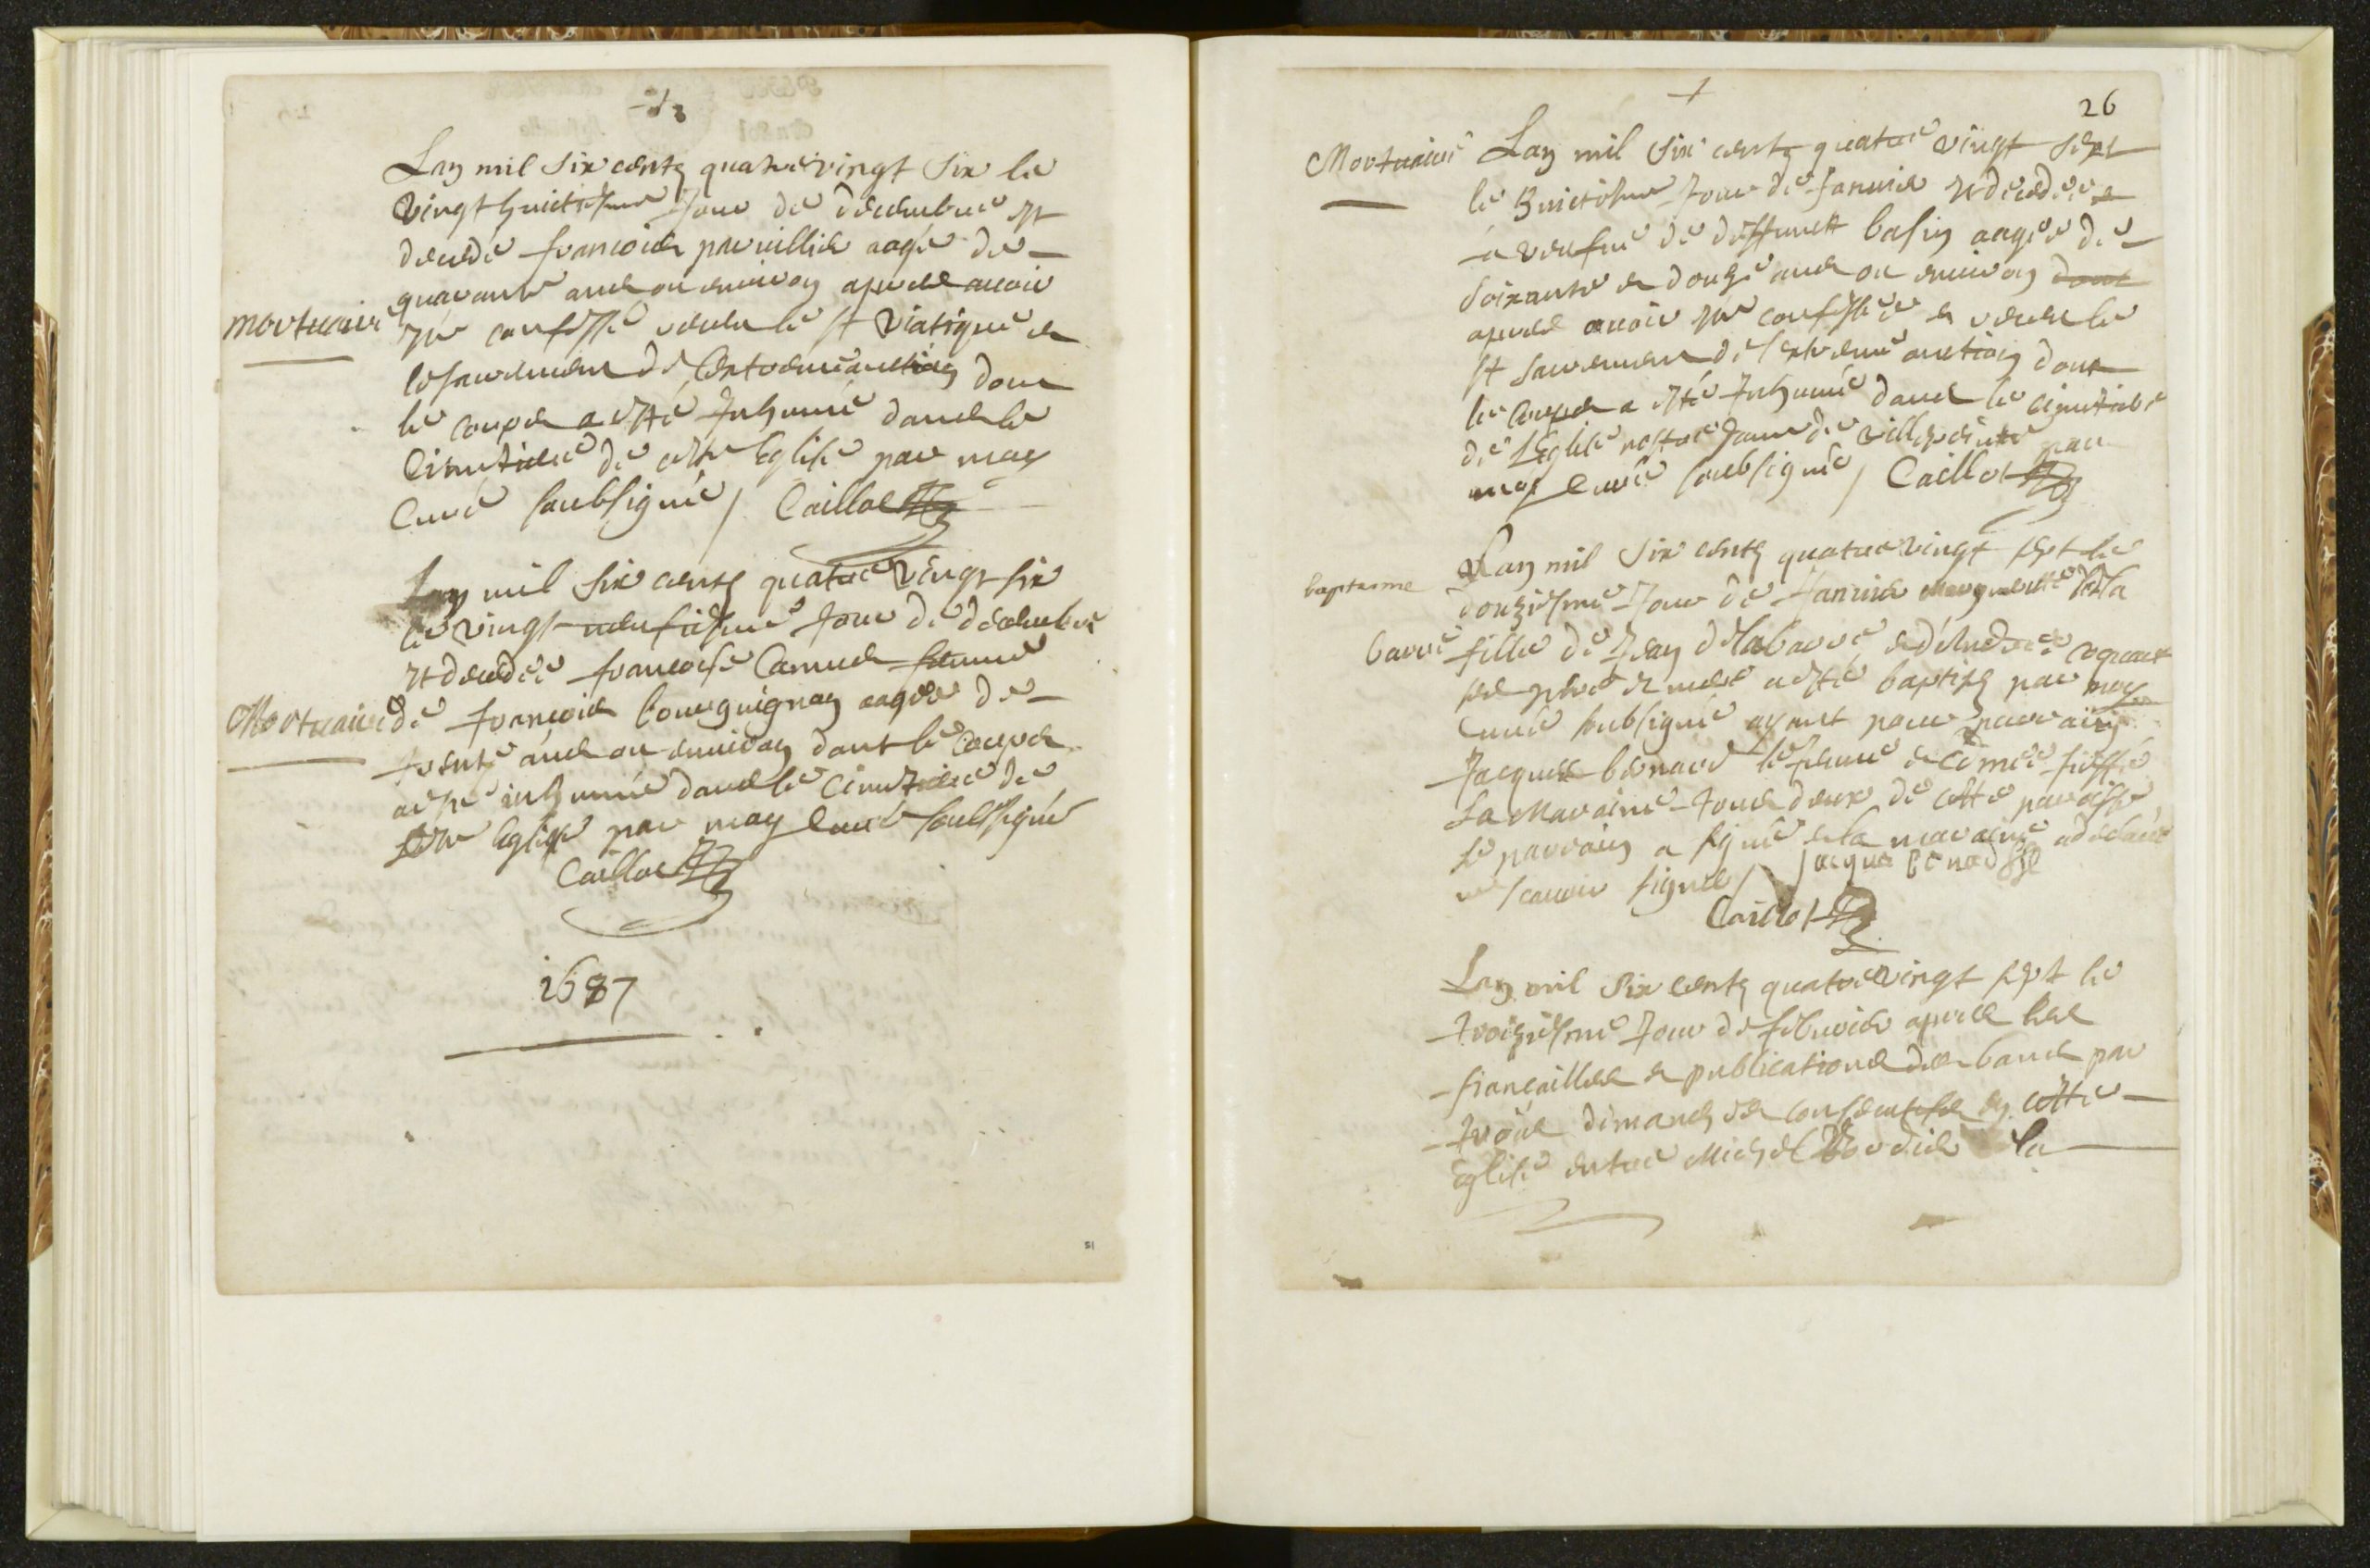 Lan mil six centz quatre vingt six le
vingt huictiesme Jour de decembre est
decedé francois parvillié aagé de
quarante ans ou environ apres avoir
mortuaire
esté confessé receu le st viatique et
le sacrement de lextremeonction dont
le corps a esté Inhumé dans le
Cimetiere de cette Eglise par moy
Curé soubsigné / Caillot
Lan mil six centz quatre vingt six
le vingt neufiesme Jour de decembre
est decedée francoise Camus femme
Mortuaire
de francois bourguignon aagée de
trente ans ou environ dont le corps
a esté inhumé dans le Cimetiere de
cette Eglise par moy Curé soubsigné
Caillot
1687
26
Mortuaire
Lan mil six centz quatre vingt sept
le huictiesme Jour de Janvier est decedée
la veufve de deffunct basin aagée de
soixante et douze ans ou environ dont
apres avoir esté confessée et receu le
st sacrement de lextreme onction dont
le Corps a esté Inhumé dans le cimetiere
de LEglise nostre dame de villepeinte par
moy Curé soubsigné / Caillot
baptesme
Lan mil six centz quatre vingt sept le
douziesme Jour de Janvier Margueritte de la
barre fille de Jean de labarre et de
ses pere et mere a esté baptisé par moy
Curé soubsigné ayant pour parrain
Jacques benard le Jeune et
La Maraine tous deux de cette paroisse
le parrain a signé et la maraine a declaré
ne scavoir signer / Jacque benard
Caillot
Lan mil six centz quatre vingt sept le
troiziesme Jour de febvrier apres les
fiancailles et publications des bans par
trois dimanches consecutifs en cette
Eglise entre Michel la